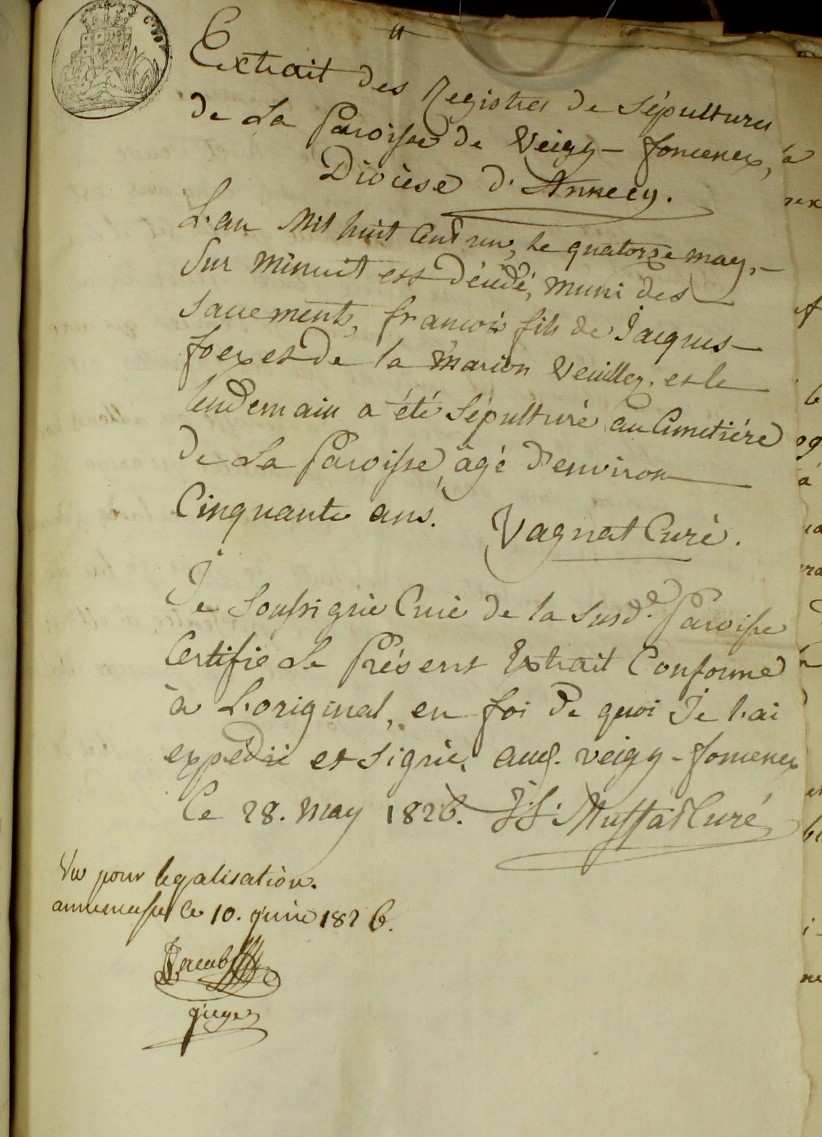 Extrait des Registres de Sépultures
de La Paroisse de Veigy-foncenex,
Diocèse d'Annecy.
L'an Mil huit Cent un, le quatorze may,
Sur Minuit est décédé, muni des
Sacrements, francois fils de Jacques
foex et de la Marion Veuillez. et le
lendemain a été Sépulturé au Cimetiére
de La Paroisse, âgé d'environ
Cinquante ans. Vagnat Curé.
Je Soussigné Curé de la Susd.e Paroisse
Certifie Le Présent Extrait Conforme
à L'original, en foi de quoi Je l'ai
expédié et Signé, aud. veigy-foncenex
Ce 28. may 1826. Curé
Vu pour legalisation.
annemasse le 10. juin 1826.